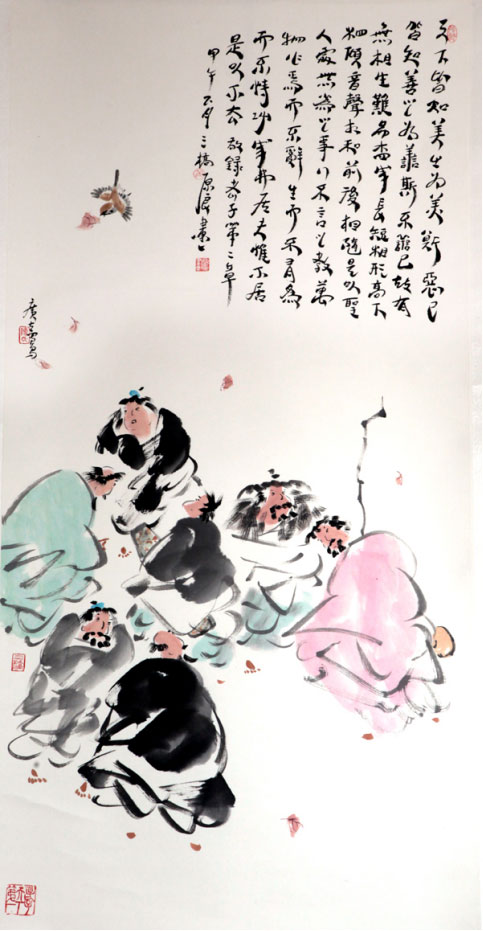 天下皆知美之为美斯惡已
皆知善之为善斯不善已故有
無相生難易相成長短相形高下
相傾音聲相和前後相隨是以聖
人處無為之事行不言之教萬
物作焉而不辭生而不有為
而不恃功成弗居夫惟不居
是以不去 敬録老子第二章
甲午